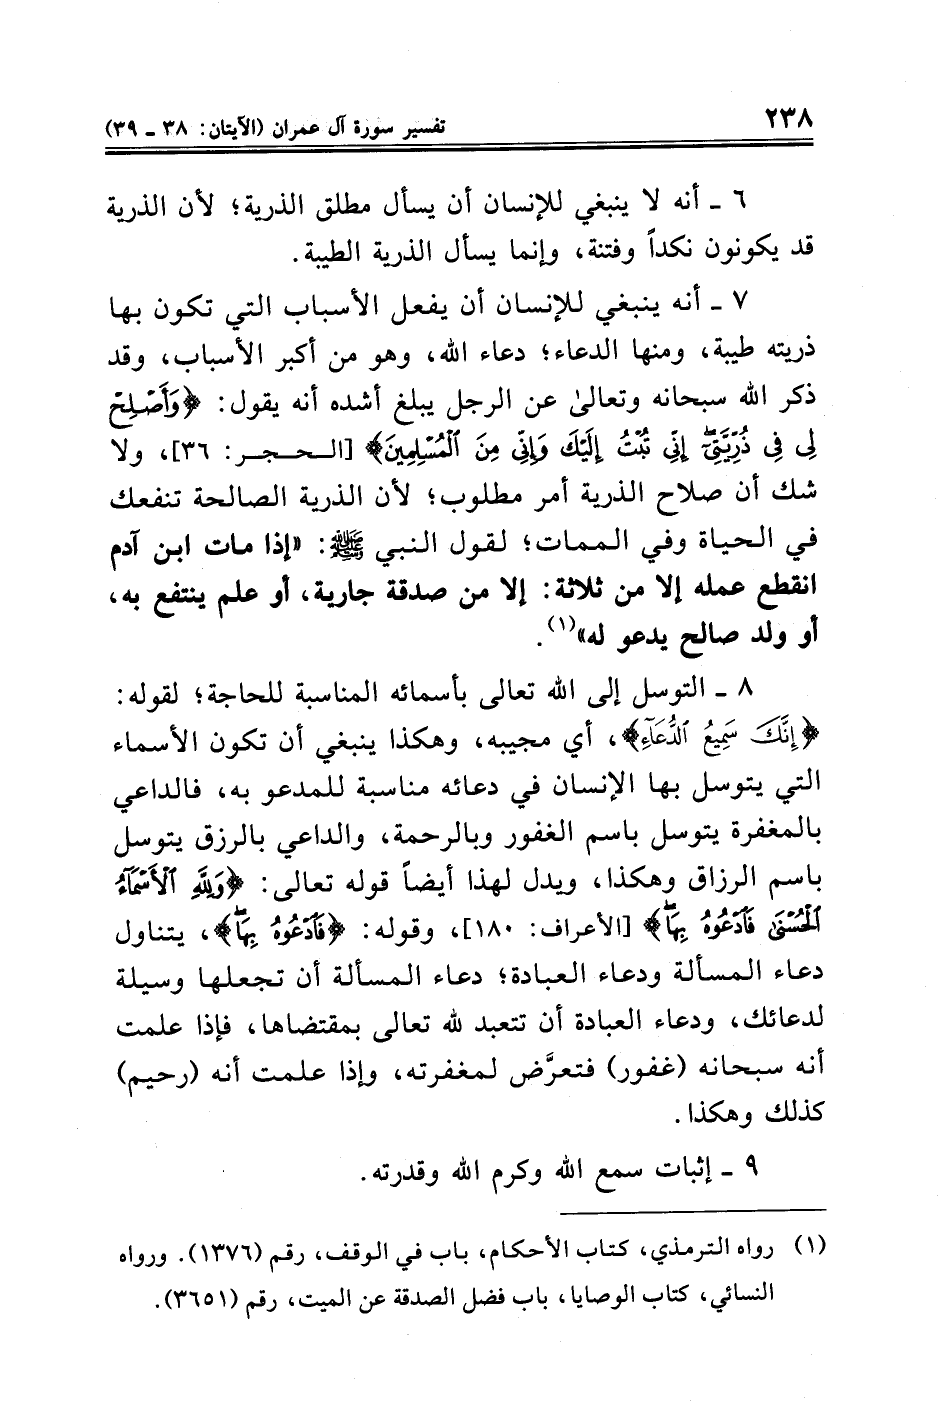 ٢٣٨
تفسير سورة آل عمران (الآيتان: ٣٨ ـ ٣٩)
٦ ـ أنه لا ينبغي للإنسان أن يسأل مطلق الذرية؛ لأن الذرية
قد يكونون نكداً وفتنة، وإنما يسأل الذرية الطيبة.
٧ ـ أنه ينبغي للإنسان أن يفعل الأسباب التي تكون بها
ذريته طيبة، ومنها الدعاء؛ دعاء الله، وهو من أكبر الأسباب، وقد
ذكر الله سبحانه وتعالىٰ عن الرجل يبلغ أشده أنه يقول: ﴿وَأَصْلِحْ
لِى فِى ذُرِّيَّتِىٓۖ إِنِّى تُبْتُ إِلَيْكَ وَإِنِّى مِنَ ٱلْمُسْلِمِينَ﴾ [الحجر: ٣٦]، ولا
شك أن صلاح الذرية أمر مطلوب؛ لأن الذرية الصالحة تنفعك
في الحياة وفي الممات؛ لقول النبي ﷺ: «إذا مات ابن آدم
انقطع عمله إلا من ثلاثة: إلا من صدقة جارية، أو علم ينتفع به،
أو ولد صالح يدعو له»(١).
٨ ـ التوسل إلى الله تعالى بأسمائه المناسبة للحاجة؛ لقوله:
﴿إِنَّكَ سَمِيعُ ٱلدُّعَآءِ﴾، أي مجيبه، وهكذا ينبغي أن تكون الأسماء
التي يتوسل بها الإنسان في دعائه مناسبة للمدعو به، فالداعي
بالمغفرة يتوسل باسم الغفور وبالرحمة، والداعي بالرزق يتوسل
باسم الرزاق وهكذا، ويدل لهذا أيضاً قوله تعالى: ﴿وَلِلَّهِ ٱلْأَسْمَآءُ
ٱلْحُسْنَىٰ فَٱدْعُوهُ بِهَاۖ﴾ [الأعراف: ١٨٠]، وقوله: ﴿فَٱدْعُوهُ بِهَاۖ﴾، يتناول
دعاء المسألة ودعاء العبادة؛ دعاء المسألة أن تجعلها وسيلة
لدعائك، ودعاء العبادة أن تتعبد لله تعالى بمقتضاها، فإذا علمت
أنه سبحانه (غفور) فتعرَّض لمغفرته، وإذا علمت أنه (رحيم)
كذلك وهكذا.
٩ ـ إثبات سمع الله وكرم الله وقدرته.
(١) رواه الترمذي، كتاب الأحكام، باب في الوقف، رقم (١٣٧٦). ورواه
النسائي، كتاب الوصايا، باب فضل الصدقة عن الميت، رقم (٣٦٥١).